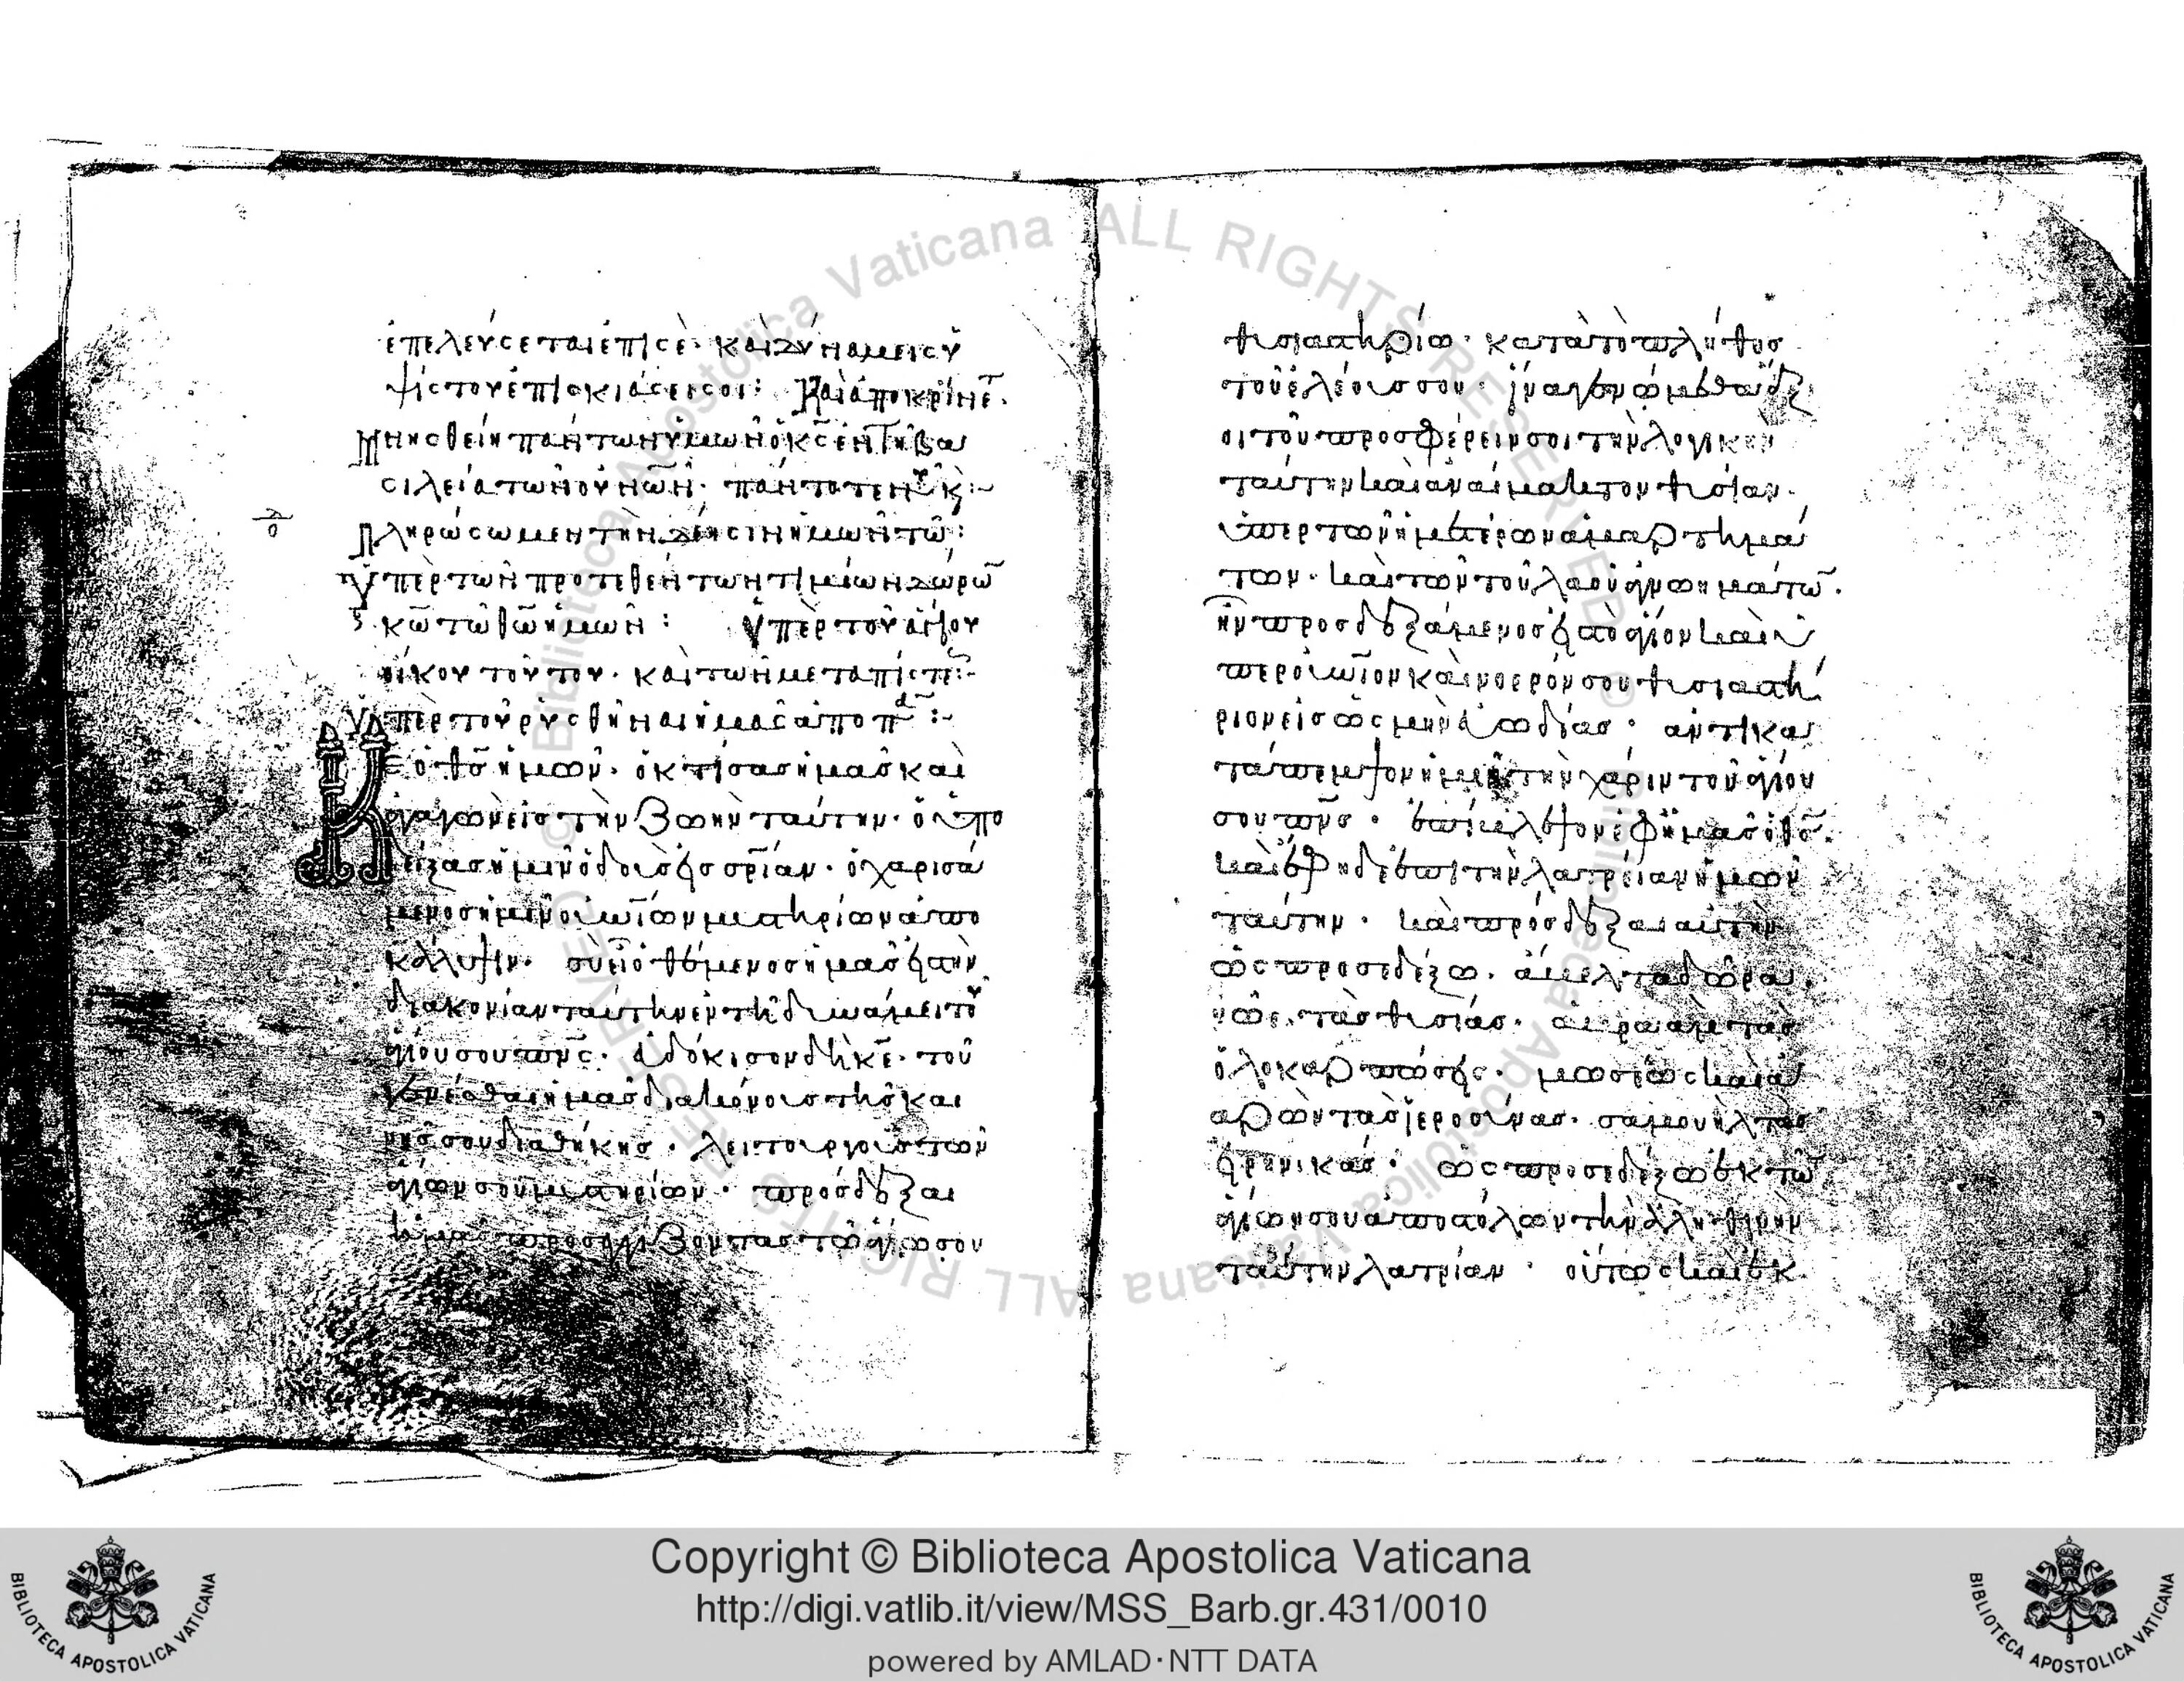 ἐπελεύσεται ἐπὶ σὲ· καὶ δύναμεις ὑ
ψίστου ἐπισκιάσει σοι: Καὶ ἀποκρίνετ
Μνησθείη πάντων ὑμῶν ὁ κς ἐν τῆ βα
σιλεία τῶν οὐνῶν· πάντοτε νῦν κ:
Πληρώσωμεν τὴν δέησιν ἡμῶν τῶ:
Ὑπὲρ τῶν προτεθέντων τιμίων δώρω
κω τῶ θω ἡμῶν: Ὑπὲρ τοῦ ἁγίου
οίκου τούτου· καὶ τῶν μετα πίστε:
Ὑπὲρ τοῦ ρυσθῆναι ἡμᾶς ἀπο π:
Κε ὁ θς ἡμῶν· ὁ κτίσας ἡμᾶς καὶ
ἀγαγὼν εἰς τὴν ζωὴν ταύτην· ὁ ὑπο
δείξας ἡμῖν ὁδοὺς εἰς σρίαν· ὁ χαρισά
μενος ἡμῖν οὐνίων μυστηρίων ἀπο
κάλυψιν· σὺ εἶ ὁ θέμενος ἡμᾶς εἰς τὴν
διακονίαν ταύτην ἐν τῆ δυνάμει τοῦ
ἁγίου σου πνς· εὐδόκισον δὴ κε· τοῦ
γενέσθαι ἡμᾶς διακόνους τῆς και
νῆς σου διαθήκης· λειτουργοὺς τῶν
ἁγίων σου μυστηρίων· πρόσδεξαι
ἡμᾶς προσεγγίζοντας τῶ ἁγίω σου
θυσιαστηρίω· κατὰ τὸ πλῆθος
τοῦ ἐλέους σου· ἵνα γενώμεθα ἄξι
οι τοῦ προσφέρειν σοι τὴν λογικὴν
ταύτην καὶ ἀναίμακτον θυσίαν·
ὑπερ τῶν ἡμετέρων ἁμαρτημά
των· καὶ τῶν τοῦ λαοῦ ἀγνωημάτω·
ἣν προσδεξάμενος εἰς τὸ ἅγιον καὶ ὑ
περουνιον καὶ νοερόν σου θυσιαστή
ριον εἰς ὀσμὴν εὐωδίας· ἀντικα
τάπεμψον ἡμῖν τὴν χάριν τοῦ ἁγίου
σου πνς· ἐπίβλεψον ἐφ ἡμᾶς ὁ θς·
καὶ ἔφηδε ἐπι τὴν λατρείαν ἡμῶν
ταύτην· καὶ πρόσδεξαι αὐτὴν
ὡς προσεδέξω· ἄβελ τὰ δῶρα·
νῶε τὰς θυσίας· ἀβραὰμ τὰς
ὁλοκαρπώσεις· μωσέως καὶ ἀ
αρὼν τὰς ἱεροσύνας· σαμουὴλ τὰς
εἰρηνικάς· ὡς προσεδέξω ἐκ τῶ
ἁγίων σου ἀποστόλων τὴν ἀληθινὴν
ταύτην λατρίαν· οὕτως καὶ ἐκ
Copyright © Biblioteca Apostolica Vaticana
http://digi.vatlib.it/view/MSS_Barb.gr.431/0010
powered by AMLAD·NTT DATA
BIBLIOTECA APOSTOLICA VATICANA
BIBLIOTECA APOSTOLICA VATICANA